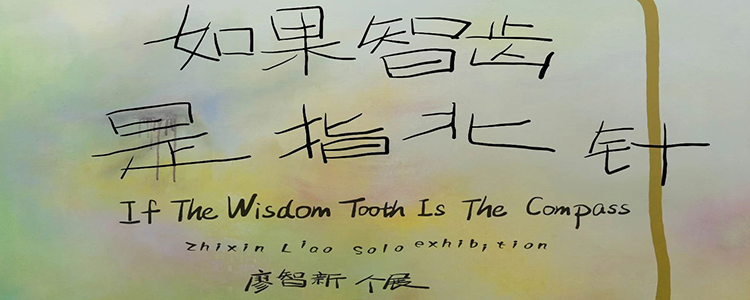 如果智齿
是指北针
If The Wisdom Tooth Is The Compass
Zhixin Liao Solo exhibition
廖智新 个展